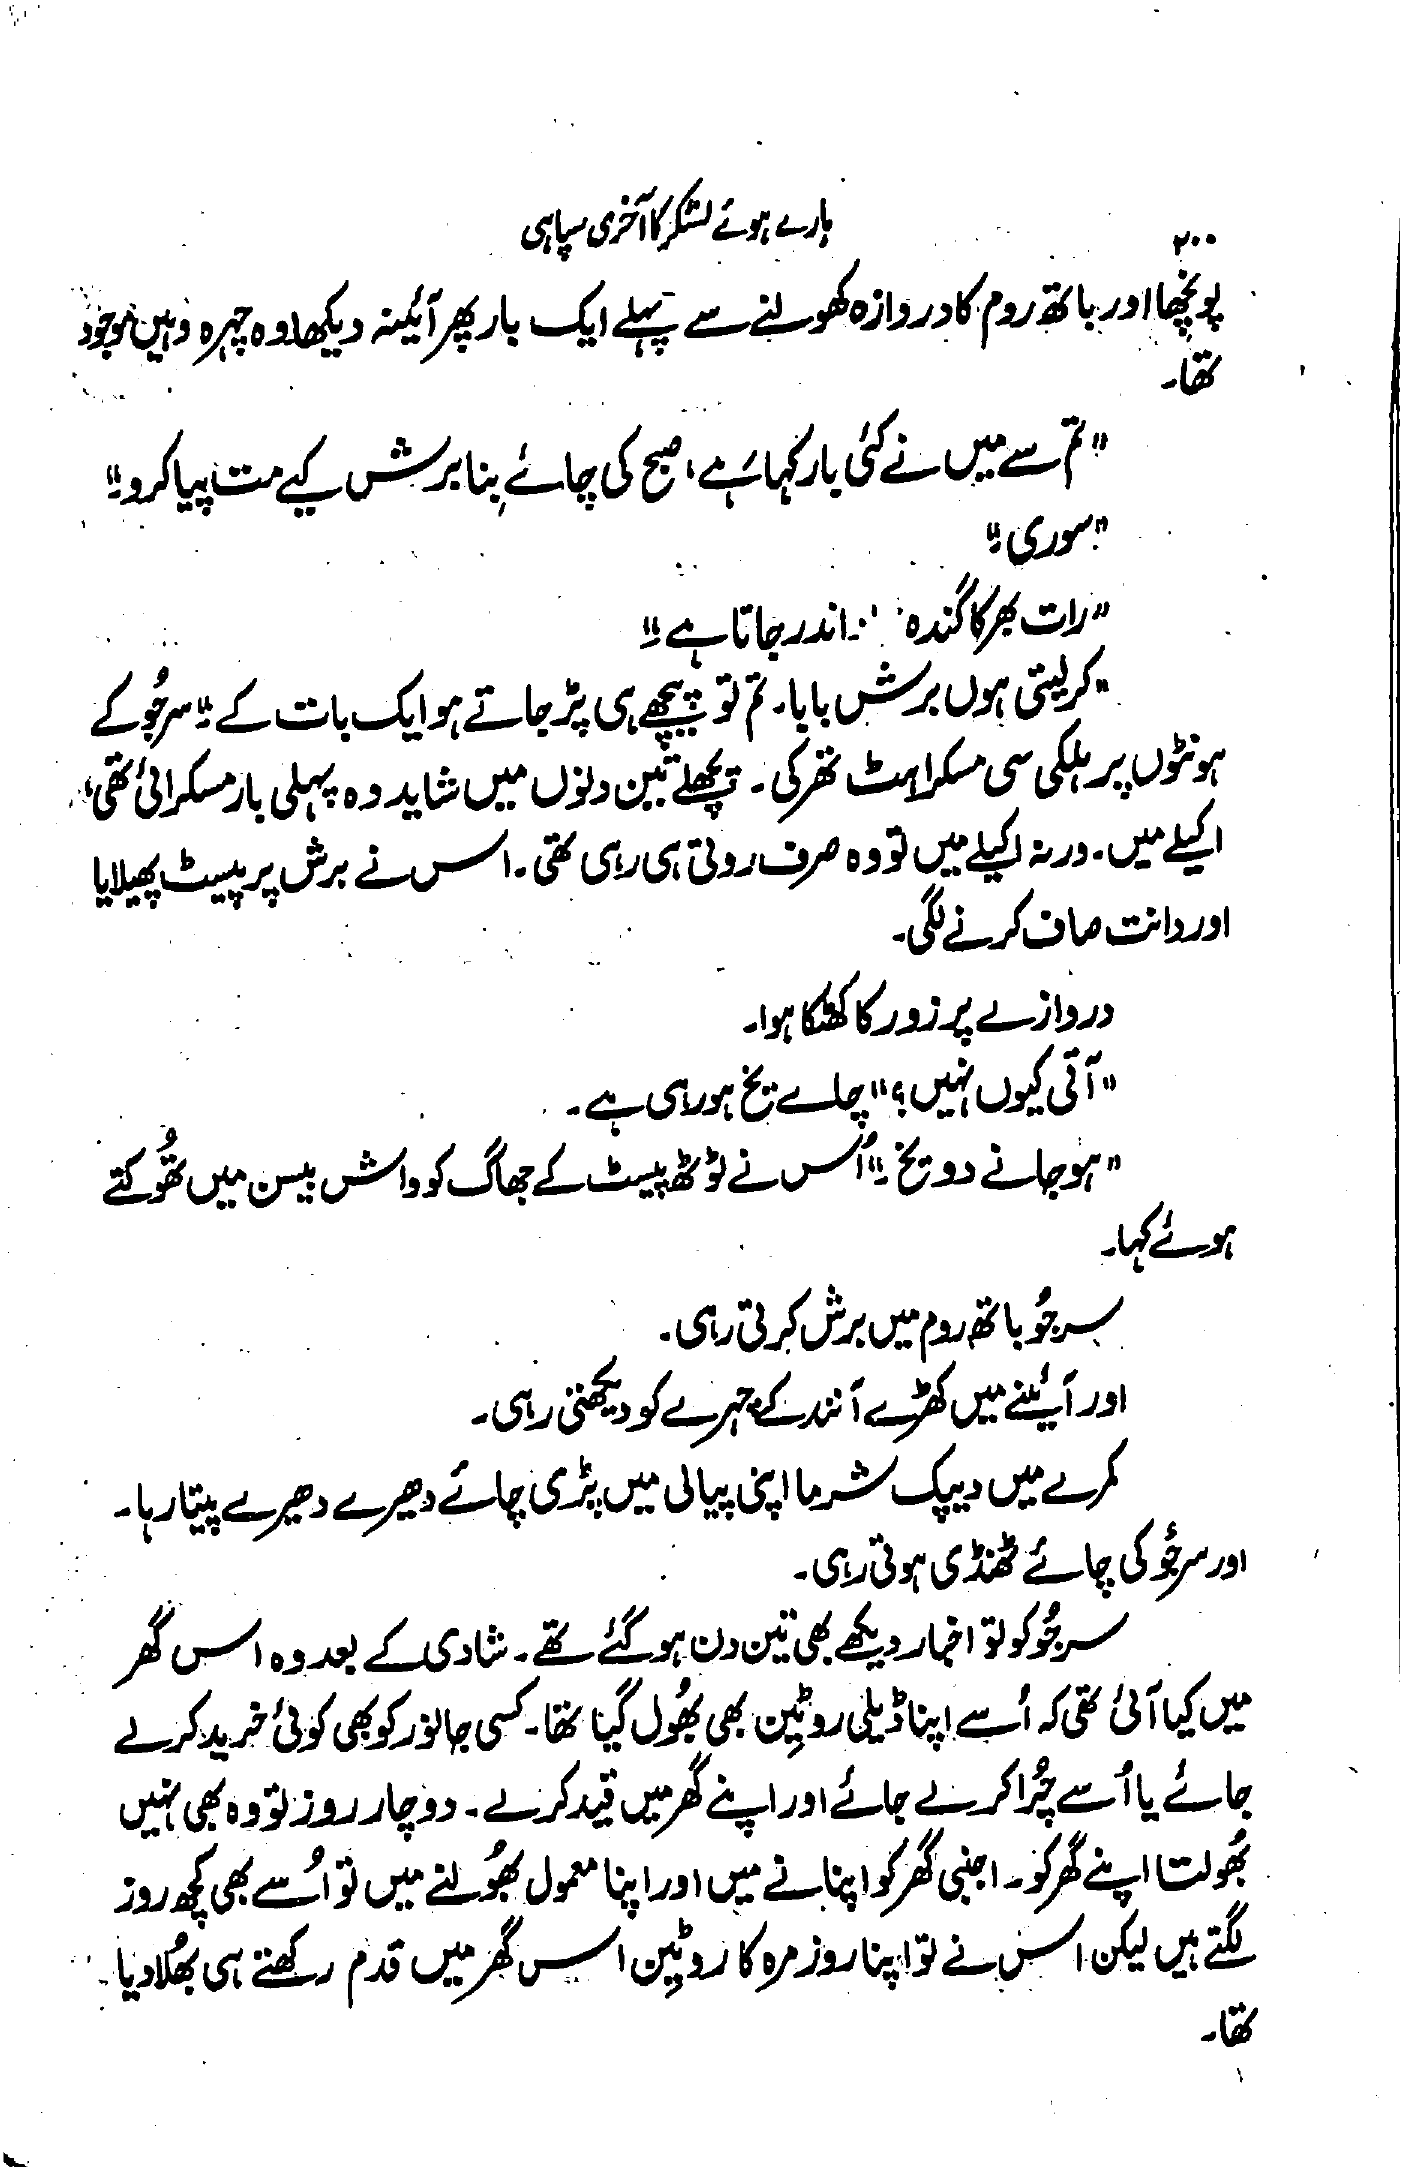 ۲۰۰
ہارے ہوئے لشکر کا آخری سپاہی
پونچھا اور باتھ روم کا دروازہ کھولنے سے پہلے ایک بار پھر آئینہ دیکھا، وہ چہرہ وہیں موجود
تھا۔
"تم سے میں نے کئی بار کہا ہے، صبح کی چائے بِنا برش کیے مت پیا کرو۔"
"سوری۔"
"رات بھر کا گندہ اندر جاتا ہے۔"
"کر لیتی ہوں برش بابا۔ تم تو پیچھے ہی پڑ جاتے ہو ایک بات کے۔" سرجُو کے
ہونٹوں پر ہلکی سی مسکراہٹ تھرکی۔ پچھلے تین دنوں میں شاید وہ پہلی بار مسکرائی تھی،
اکیلے میں۔ ورنہ اکیلے میں تو وہ صرف روتی ہی رہی تھی۔ اس نے برش پر پیسٹ پھیلایا
اور دانت صاف کرنے لگی۔
دروازے پر زور کا کھٹکا ہوا۔
"آتی کیوں نہیں؟" چاے یخ ہو رہی ہے۔
"ہو جانے دو یخ۔" اُس نے ٹوٹھ پیسٹ کے جھاگ کو واش بیسن میں تھُوکتے
ہوئے کہا۔
سرجُو باتھ روم میں برش کرتی رہی۔
اور آئینے میں کھڑے آنند کے چہرے کو دیکھتی رہی۔
کمرے میں دیپک شرما اپنی پیالی میں پڑی چائے دھیرے دھیرے پیتا رہا۔
اور سرجُو کی چائے ٹھنڈی ہوتی رہی۔
سرجُو کو تو اخبار دیکھے بھی تین دن ہو گئے تھے۔ شادی کے بعد وہ اس گھر
میں کیا آئی تھی کہ اُسے اپنا ڈیلی روٹِین بھی بھُول گیا تھا۔ کسی جانور کو بھی کوئی خرید کر لے
جائے یا اُسے چُرا کر لے جائے اور اپنے گھر میں قید کر لے۔ دو چار روز تو وہ بھی نہیں
بھُولتا اپنے گھر کو۔ اجنبی گھر کو اپنانے میں اور اپنا معمول بھُولنے میں تو اُسے بھی کچھ روز
لگتے ہیں لیکن اس نے تو اپنا روزمرہ کا روٹِین اس گھر میں قدم رکھتے ہی بھُلا دیا
تھا۔